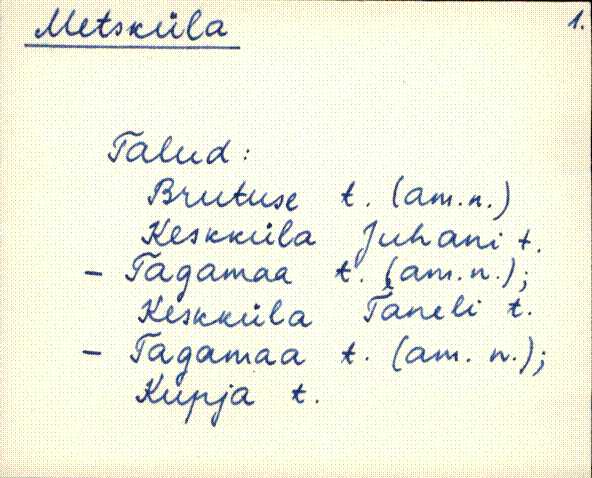 Metsküla 1.
Talud:
Brutuse t. (am.n.)
Keskküla Juhani t.
- Tagamaa t. (am.n.);
Keskküla Taneli t.
- Tagamaa t. (am.n.);
Kupja t.